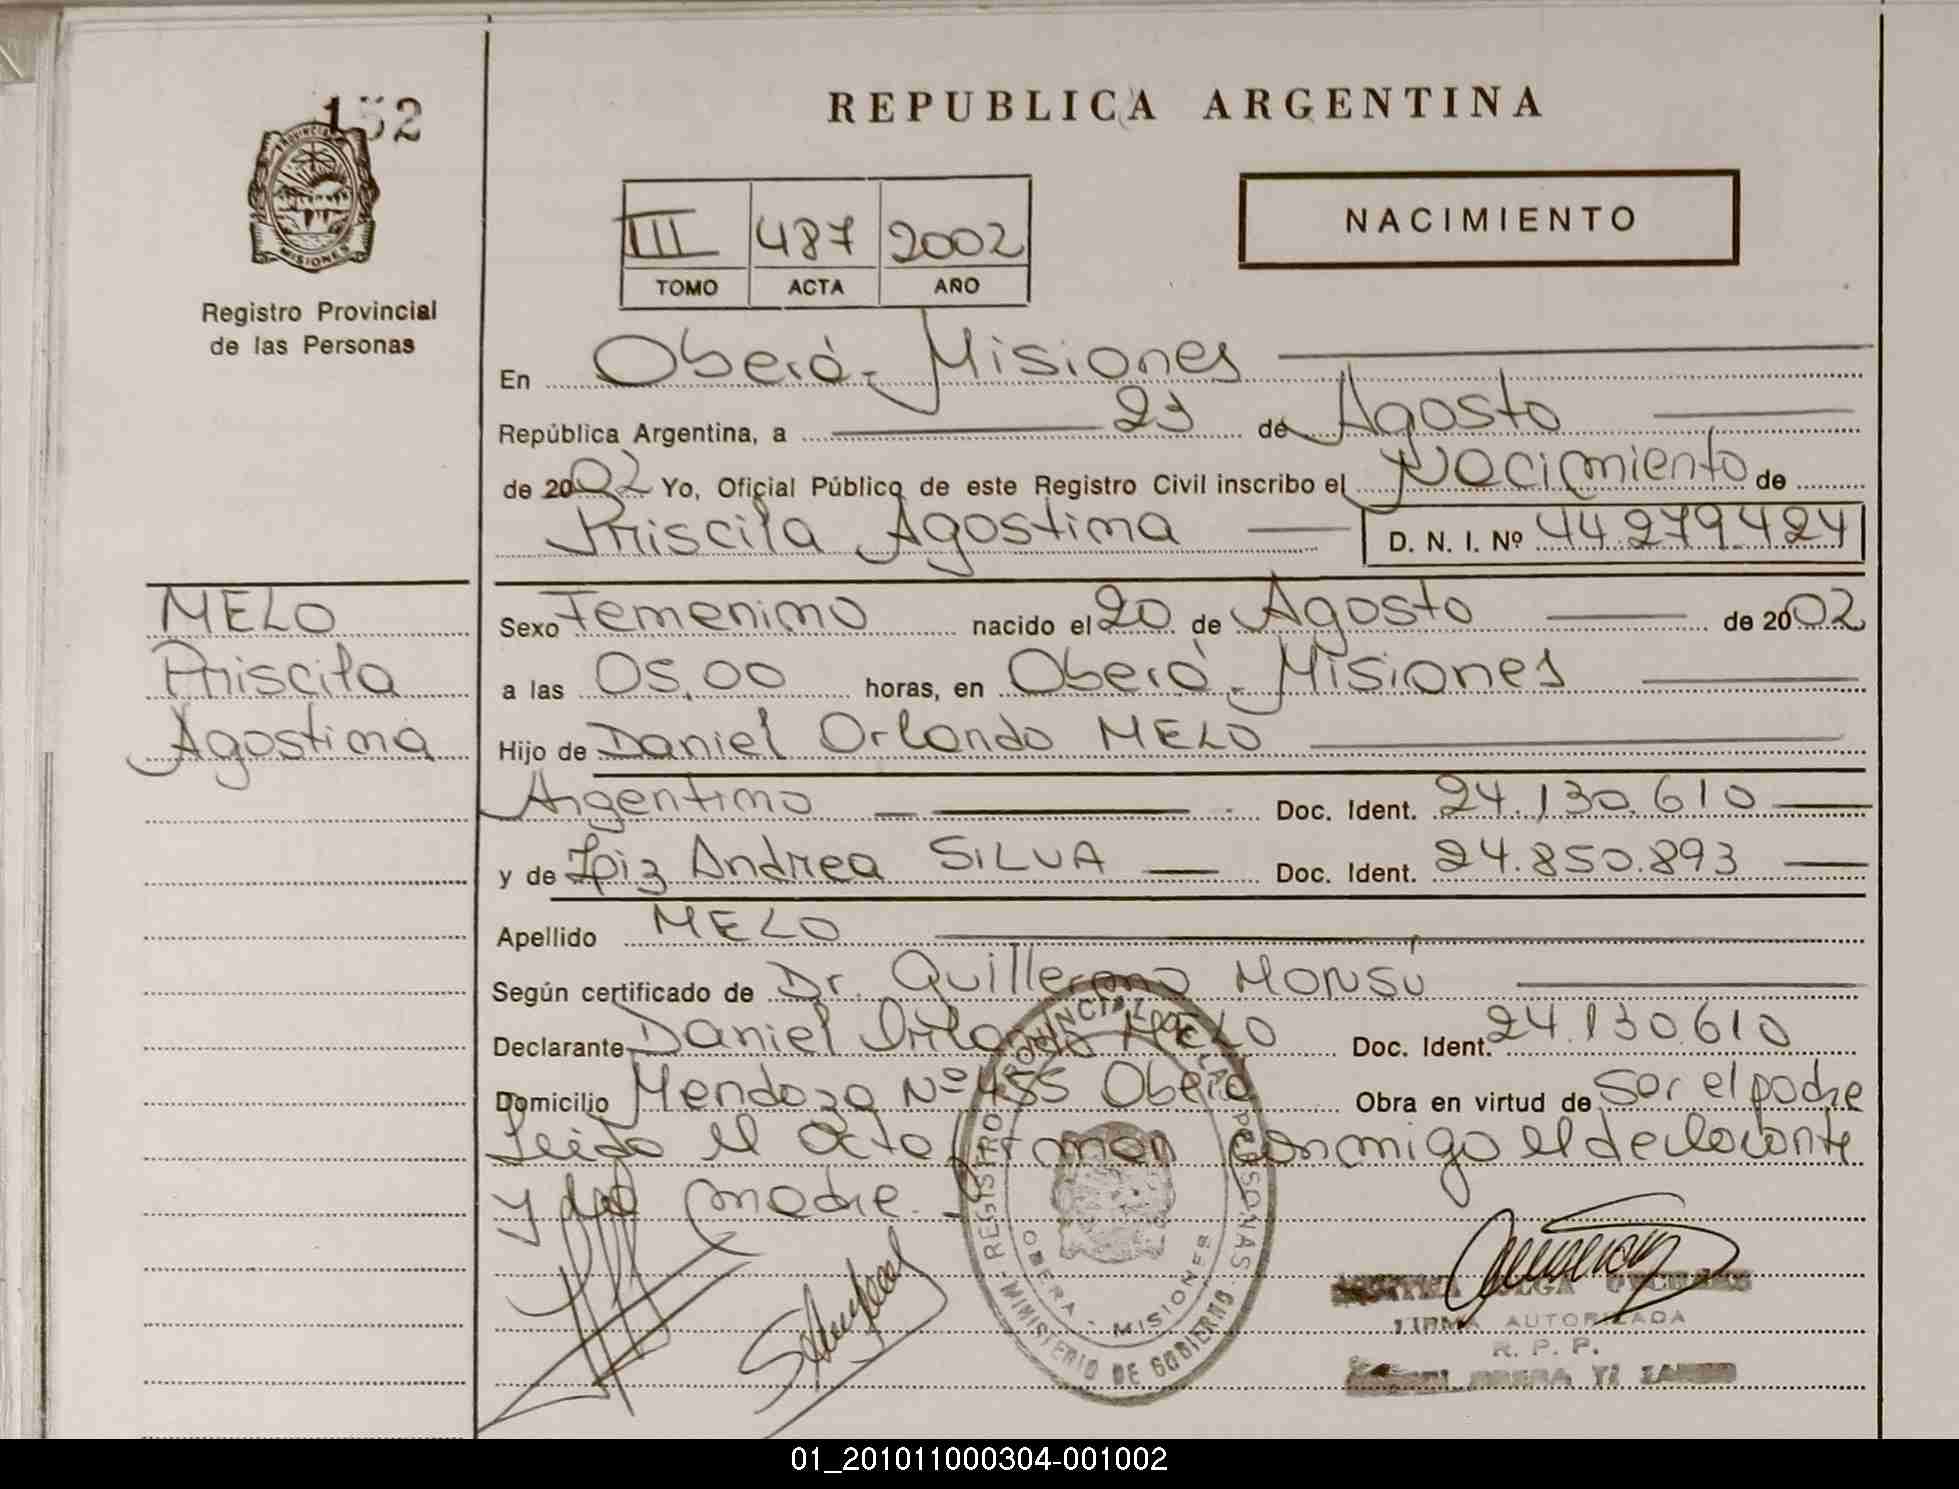 152
REPUBLICA ARGENTINA
PROVINCIA
MISIONES
Registro Provincial
de las Personas
III 487 2002
TOMO ACTA AÑO
NACIMIENTO
En Oberá - Misiones
República Argentina, a 23 de Agosto
de 2002 Yo, Oficial Público de este Registro Civil inscribo el Nacimiento de
Priscila Agostina D. N. I. Nº 44.279.424
MELO
Priscila
Agostina
Sexo Femenino nacido el 20 de Agosto de 2002
a las 05.00 horas, en Oberá - Misiones
Hijo de Daniel Orlando MELO
Argentino Doc. Ident. 24.130.610
y de Andrea SILVA Doc. Ident. 24.850.893
Apellido MELO
Según certificado de Dr. Guillermo MONSÚ
Declarante Daniel Orlando MELO Doc. Ident. 24.130.610
Domicilio Mendoza Nº 455 Oberá Obra en virtud de ser el padre
Leída el acta firman conmigo el declarante
y la madre.
REGISTRO PROVINCIAL DE LAS PERSONAS
OBERA - MISIONES
MINISTERIO DE GOBIERNO
OLGA
FIRMA AUTORIZADA
R. P. P.
01_201011000304-001002